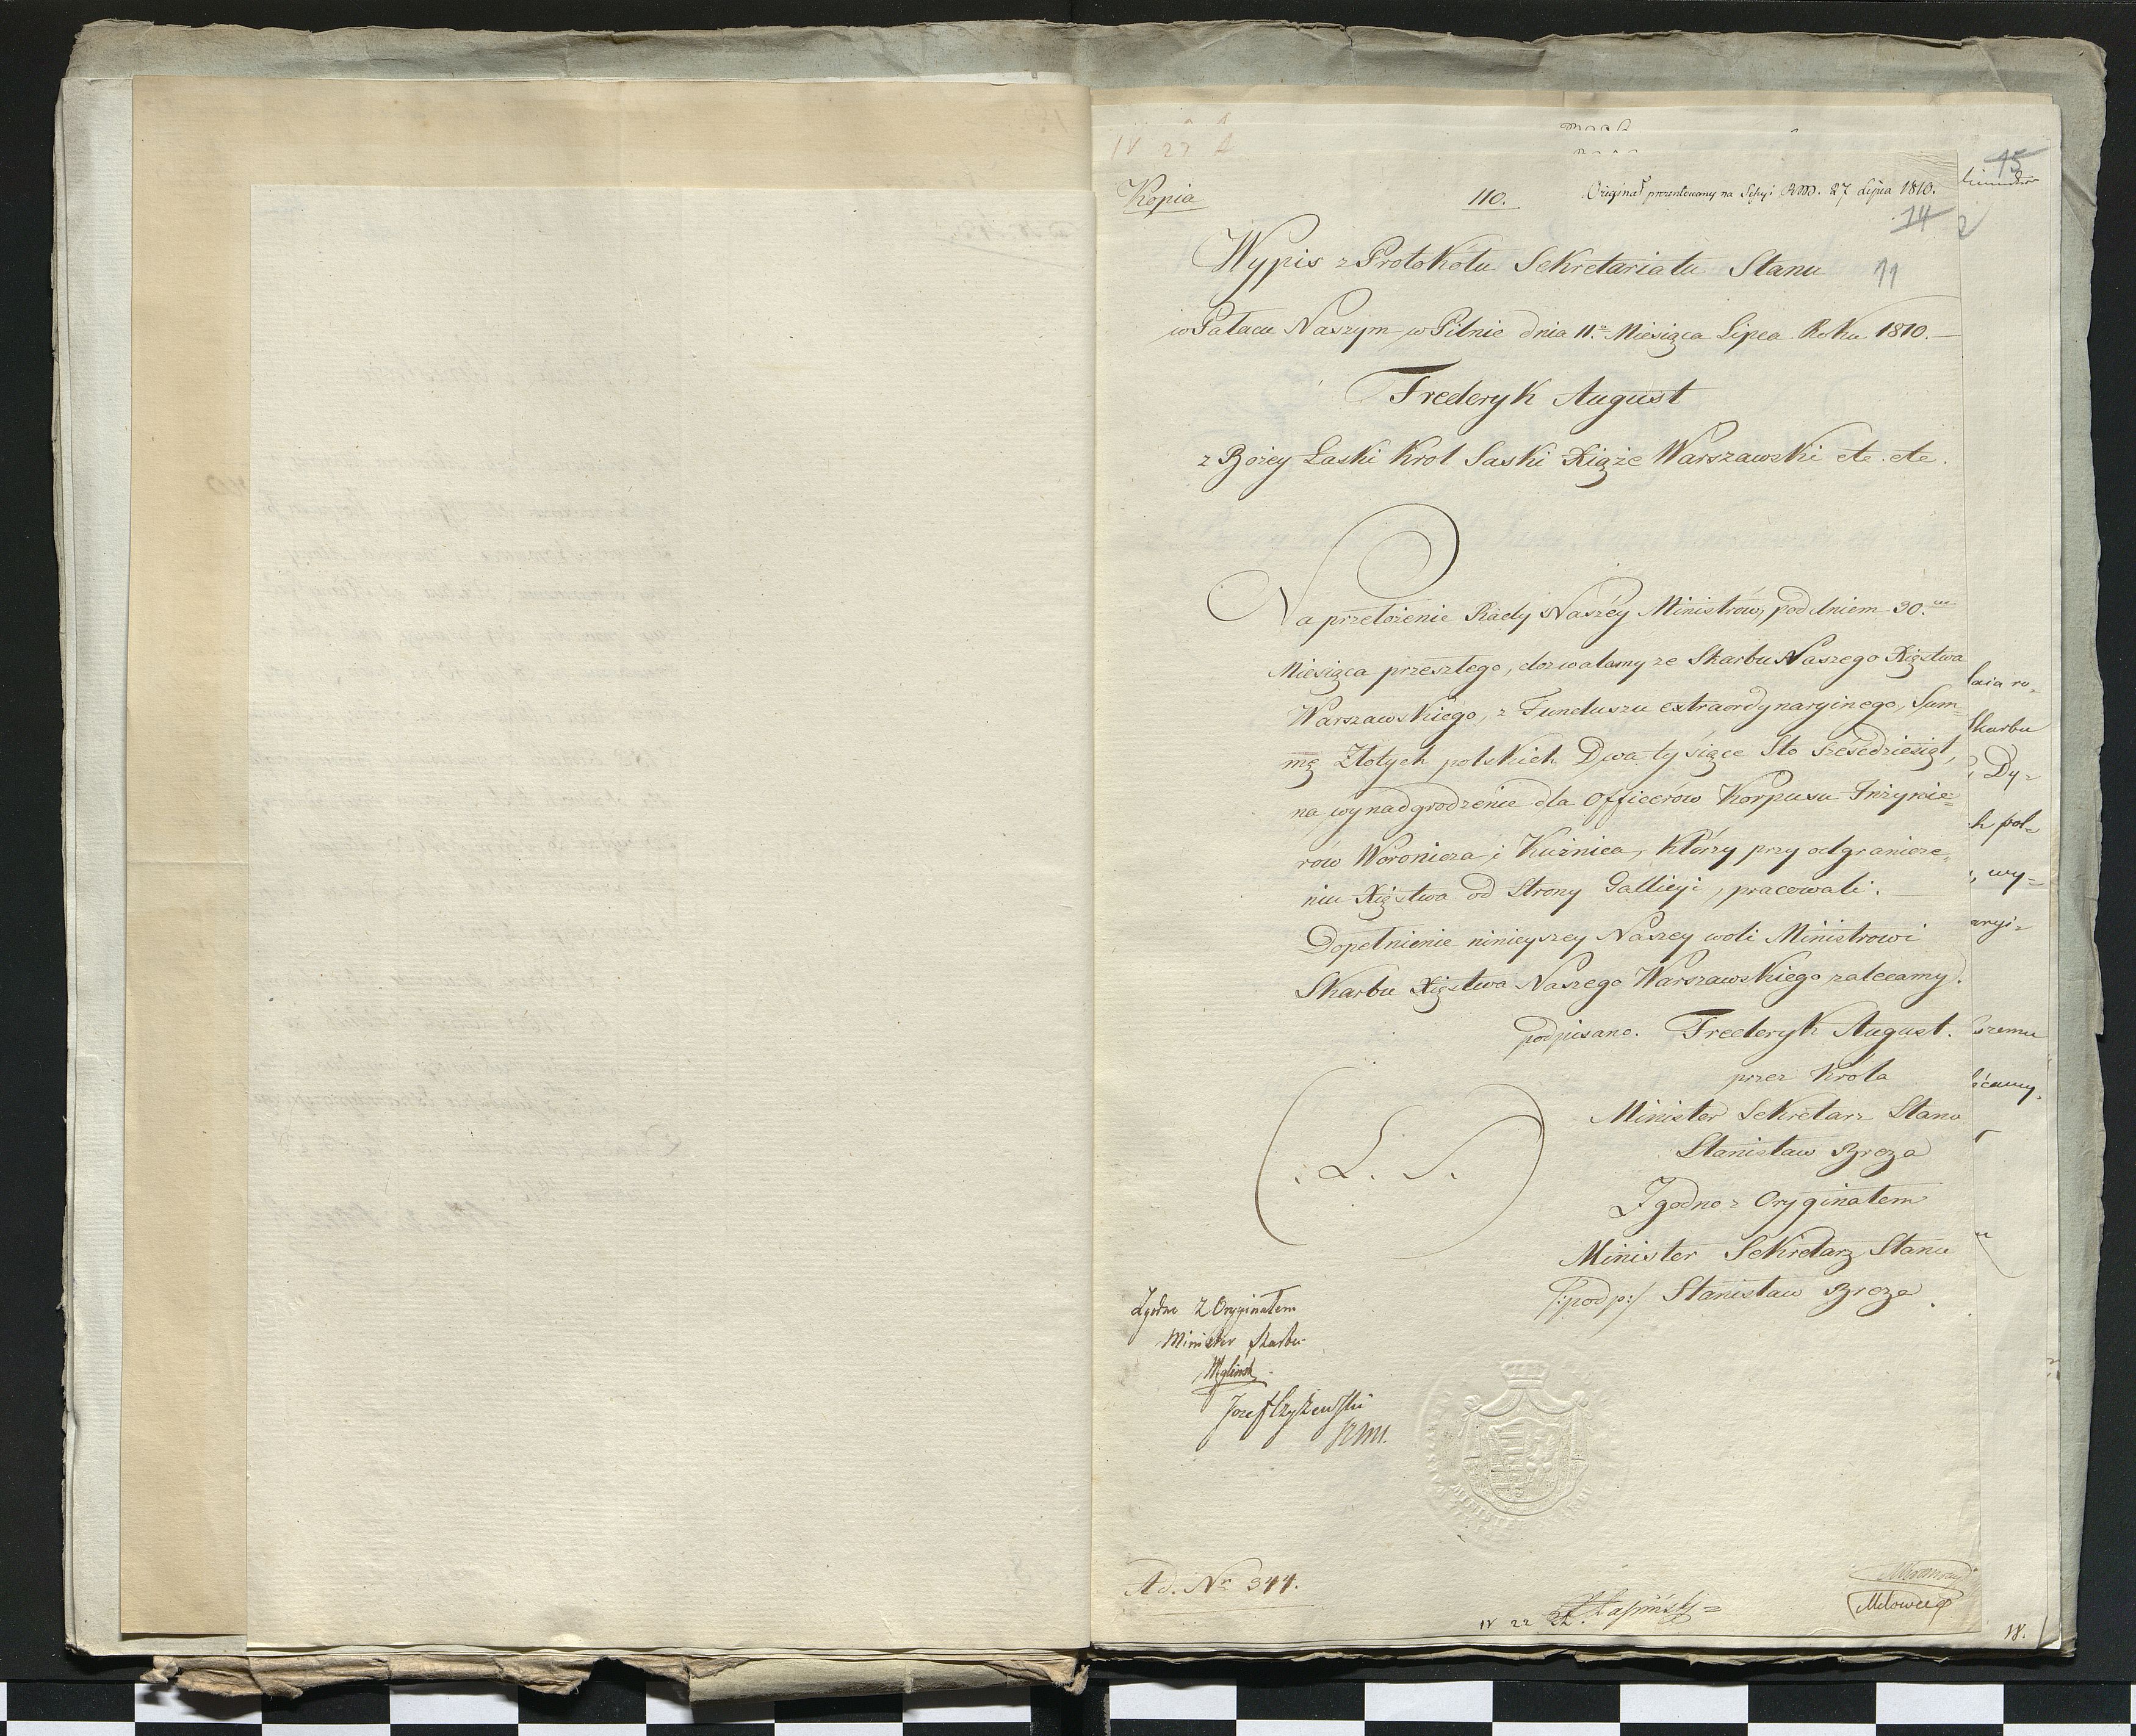 Kopia
110.
Originał prezentowany na Sessyi RM. 27 Lipca 1810.
15
14
2
11
Wypis z Protokółu Sekretariatu Stanu
w Pałacu Naszym w Pilnie dnia 11.º Miesiąca Lipca Roku 1810.—
Frederyk August
z Bożey Łaski Krol Saski Xiąże Warszawski etc. etc.
Na przełożenie Rady Naszéy Ministrów, pod dniem 30.
Miesiąca przeszłego, dozwalamy ze Skarbu Naszego Xięstwa
Warszawskiégo, z Funduszu extraordynaryinego, Sum=
mę Złotych polskich Dwa tysiące Sto sześćdziesiąt,
na wynadgrodzenie dla Officerów Korpusu Inżynie=
rów Woronicza i Kuźnica, Którzy przy odgranicze=
niu Xięstwa od Strony Gallicyi, pracowali.
Dopełnienie ninieyszey Naszey woli Ministrowi
Skarbu Xięstwa Naszego Warszawskiego zalecamy.
podpisano. Frederyk August.
przez Króla
Minister Sekretarz Stanu
Stanisław Breza
(L. S.)
Zgodno z Oryginałem
Minister Sekretarz Stanu
/:podp:/ Stanisław Breza.
Zgodno z Oryginałem
Minister Skarbu
Węgliński
Ad. Nr 344.
IV 22
18.
Skarbu
, Dy=
h pol=
, wy=
aryi=